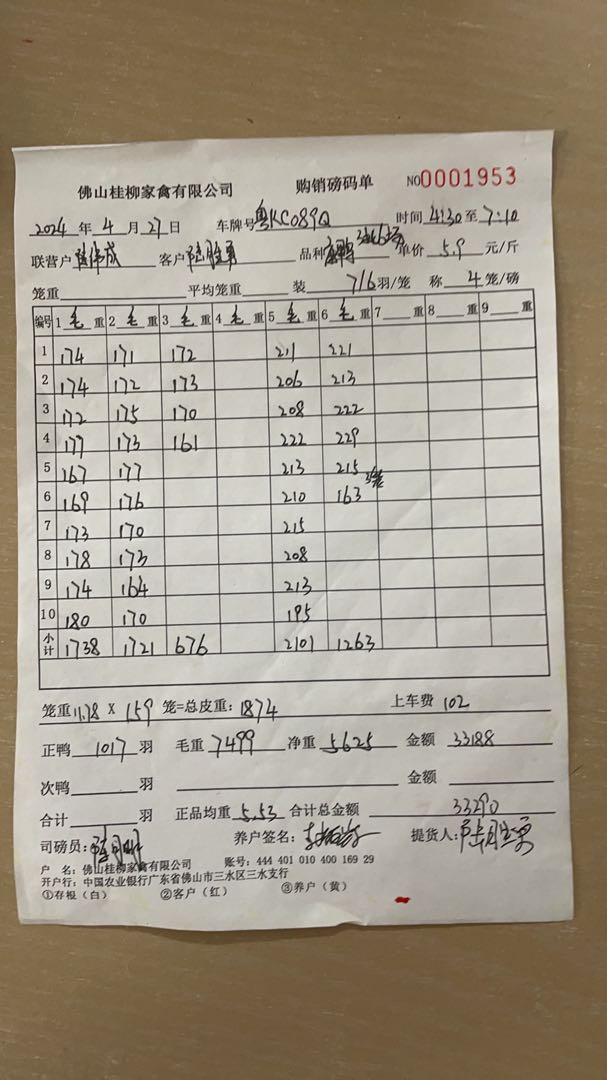 佛山桂柳家禽有限公司 购销磅码单 NO0001953
2024 年 4 月 27 日 车牌号 粤KC089Q 时间 4:30 至 7:10
联营户 伟成 客户 陆胜勇 品种 单价 5.9 元/斤
笼重 平均笼重 装 7/6 羽/笼 称 4 笼/磅
编号 1 毛 重 2 毛 重 3 毛 重 4 毛 重 5 毛 重 6 毛 重 7 重 8 重 9 重
1 174 171 172 211 221
2 174 172 173 206 213
3 172 175 170 208 222
4 177 173 161 222 229
5 167 177 213 215
6 169 176 210 163 3笼
7 173 170 215
8 178 173 208
9 174 164 213
10 180 170 195
小计 1738 1721 676 2101 1263
笼重 11.78 X 159 笼=总皮重: 1874 上车费 102
正鸭 1017 羽 毛重 7499 净重 5625 金额 33188
次鸭 羽 金额
合计 羽 正品均重 5.53 合计总金额 33290
司磅员: 养户签名: 提货人: 陆胜勇
户 名: 佛山桂柳家禽有限公司 账号: 444 401 010 400 169 29
开户行: 中国农业银行广东省佛山市三水区三水支行
①存根(白) ②客户(红) ③养户(黄)